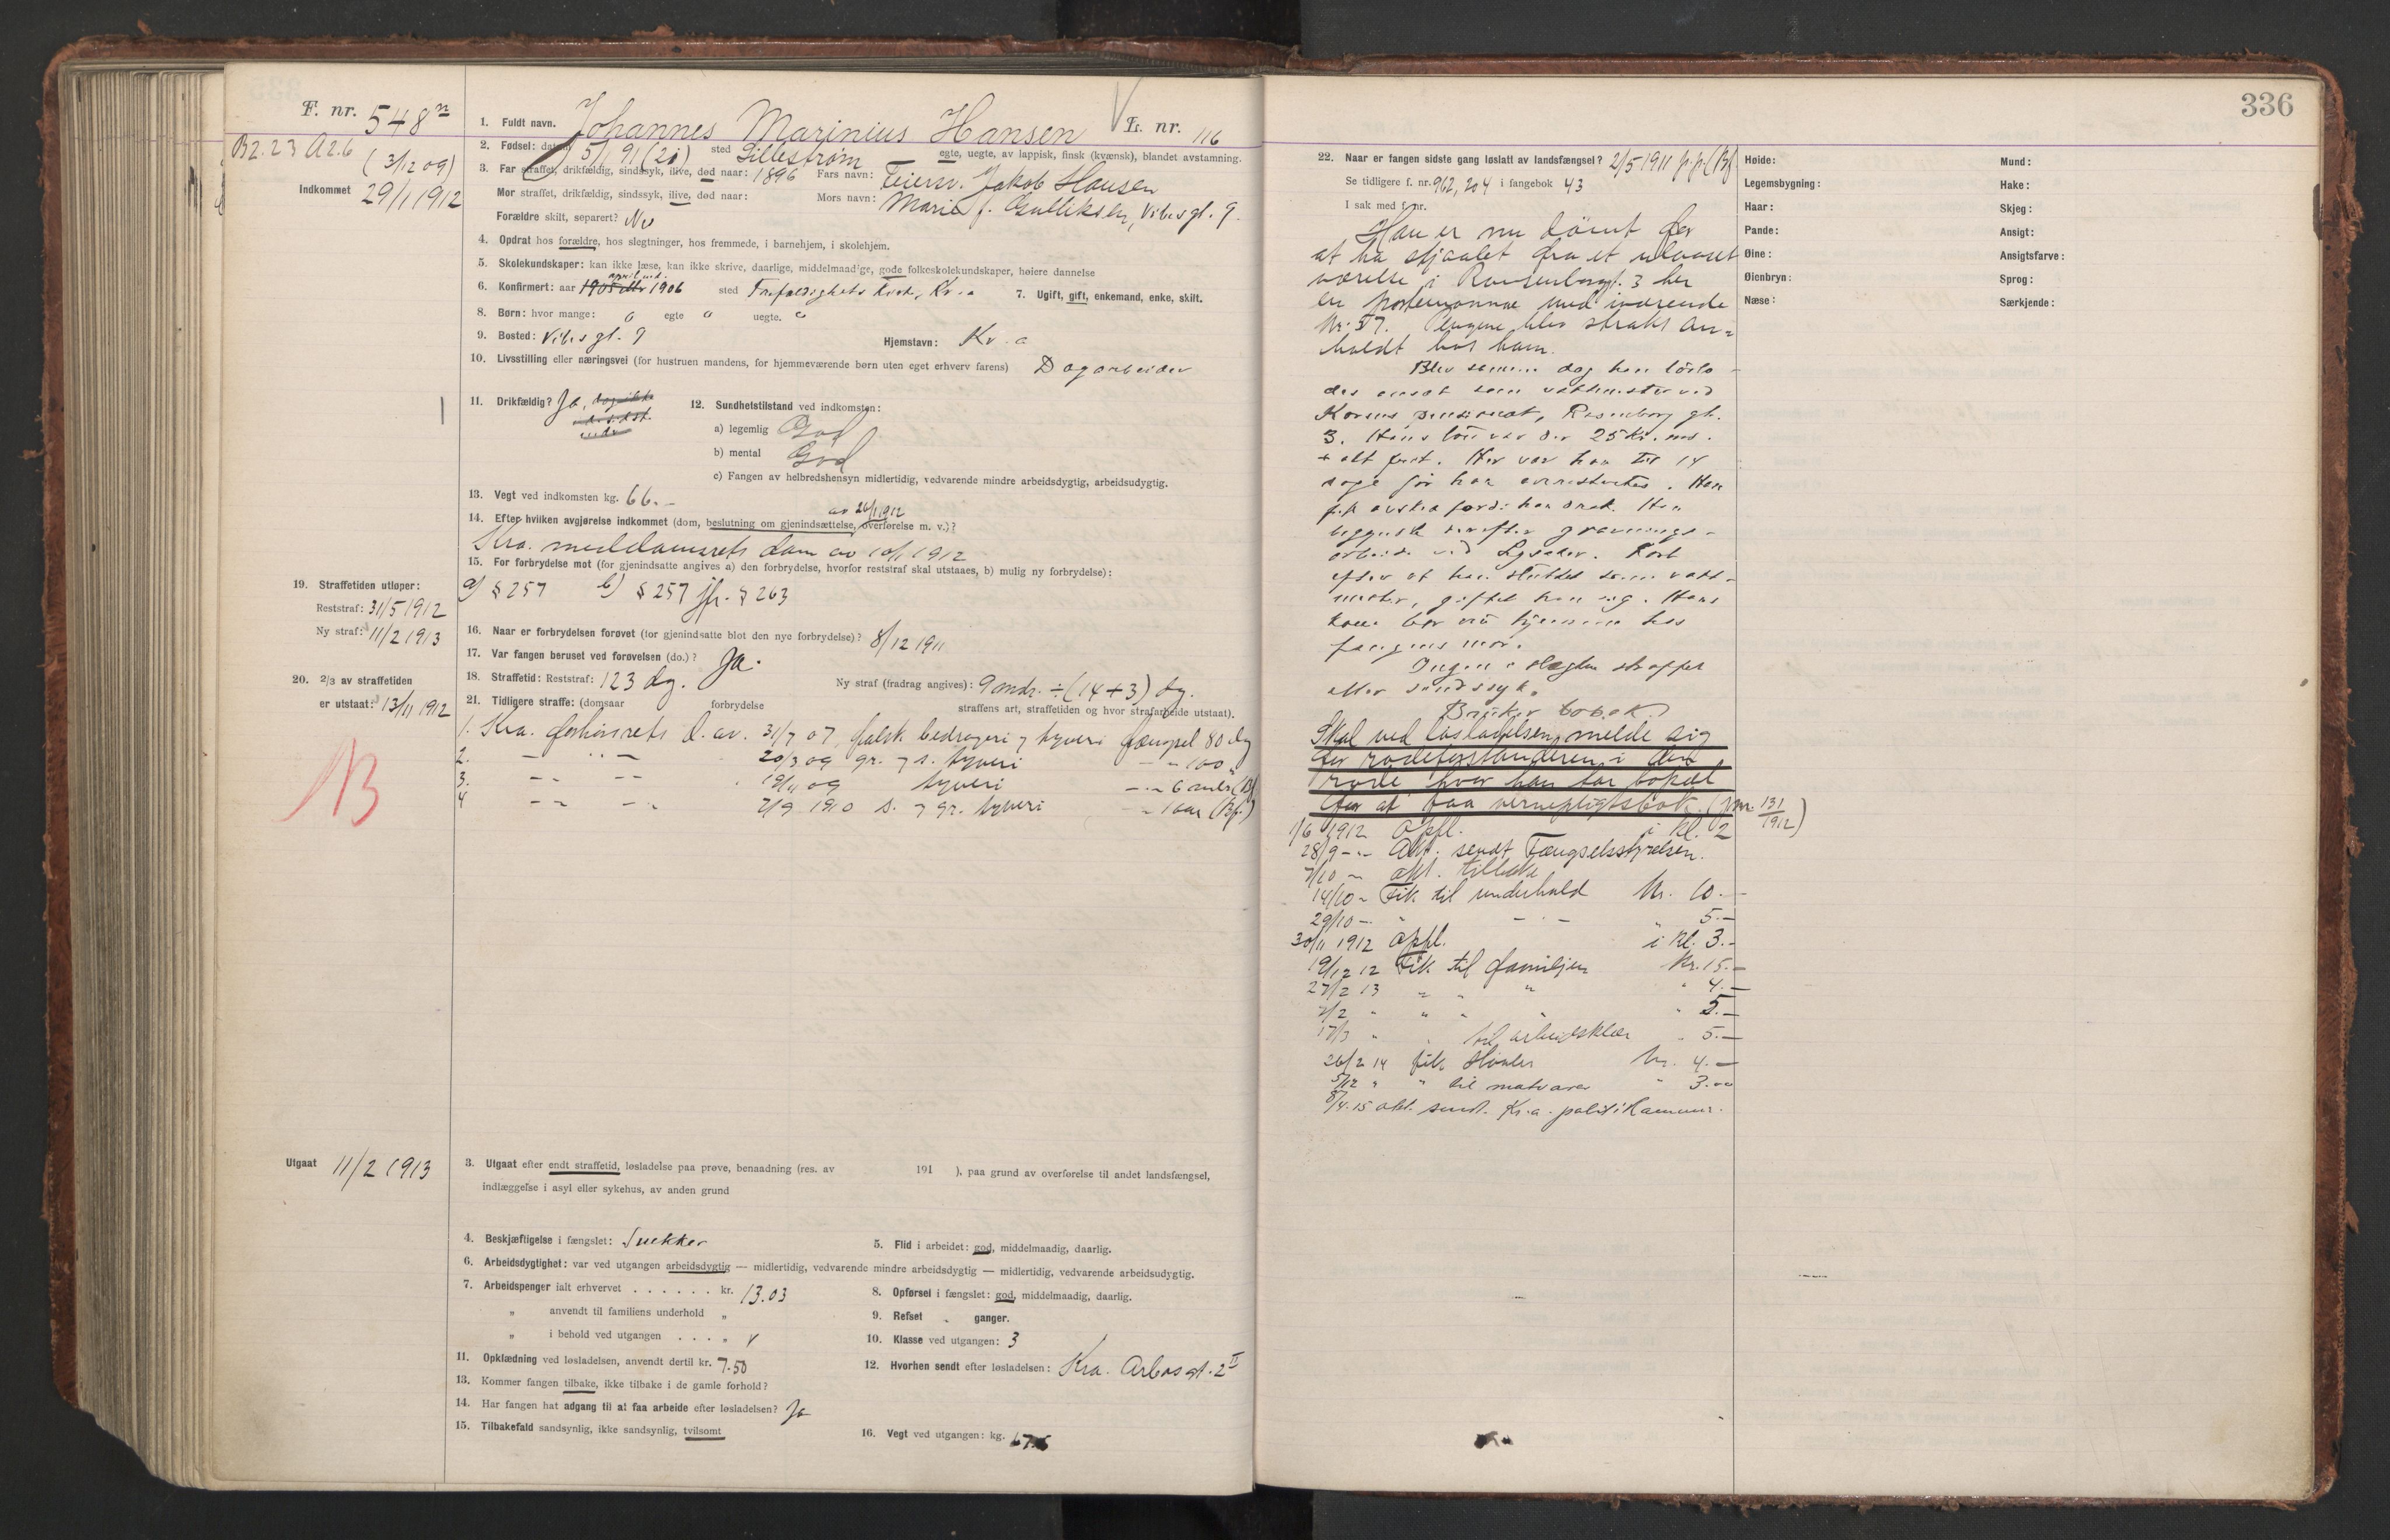 F. nr. 548
B2.23 A2.6
(3/12 09)
Indkommet 29/1 1912
1. Fuldt navn. Johannes Marinius Hansen L. nr. 116
2. Fødsel: datum 5/1 91 (20) sted Lillestrøm egte, uegte, av lappisk, finsk (kvænsk), blandet avstamning.
3. Far straffet, drikfældig, sindssyk, ilive, død naar: 1896 Fars navn: Feiersv. Jakob Hansen
Mor straffet, drikfældig, sindssyk, ilive, død naar: Mors navn: Marie f. Gulliksen, Vibesgt. 9.
Forældre skilt, separert? Nei
4. Opdrat hos forældre, hos slegtninger, hos fremmede, i barnehjem, i skolehjem.
5. Skolekundskaper: kan ikke læse, kan ikke skrive, daarlige, middelmaadige, gode folkeskolekundskaper, høiere dannelse
6. Konfirmert: aar 1906 sted Trefoldighets kirke, Kr.a 7. Ugift, gift, enkemand, enke, skilt.
8. Børn: hvor mange: 0 egte 0 uegte. 0
9. Bosted: Vibesgt. 9 Hjemstavn: Kr.a
10. Livsstilling eller næringsvei (for hustruen mandens, for hjemmeværende børn uten eget erhverv farens) Dagarbeider
11. Drikfældig? Ja,
12. Sundhetstilstand ved indkomsten:
a) legemlig God
b) mental God
c) Fangen av helbredshensyn midlertidig, vedvarende mindre arbeidsdygtig, arbeidsudygtig.
13. Vegt ved indkomsten kg. 66.-
av 26/1 1912
14. Efter hvilken avgjørelse indkommet (dom, beslutning om gjenindsættelse, overførelse m. v.)?
Kra. meddomsrets dom av 10/1 1912
15. For forbrydelse mot (for gjenindsatte angives a) den forbrydelse, hvorfor reststraf skal utstaaes, b) mulig ny forbrydelse):
a) § 257 b) § 257 jfr. § 263
19. Straffetiden utløper:
Reststraf: 31/5 1912
Ny straf: 11/2 1913
16. Naar er forbrydelsen forøvet (for gjenindsatte blot den nye forbrydelse)? 8/12 1911
17. Var fangen beruset ved forøvelsen (do.)? Ja.
18. Straffetid: Reststraf: 123 dg. Ny straf (fradrag angives): 9 mdr. ÷ (14+3) dg.
20. 2/3 av straffetiden
er utstaat: 13/11 1912
21. Tidligere straffe: (domsaar forbrydelse straffens art, straffetiden og hvor strafarbeide utstaat).
1. Kra. forhørsrets d. av. 31/7 07, falsk bedrageri & tyveri fængsel 80 dg
2. — " — 20/3 09 gr. & s. tyveri — " 100 "
3. — " — 19/11 09 tyveri — " 6 mdr (Bf)
4 — " — 7/9 1910 s. & gr. tyveri — " 1 aar (Bf.)
B
Utgaat 11/2 1913
3. Utgaat efter endt straffetid, løsladelse paa prøve, benaadning (res. av 191 ), paa grund av overførelse til andet landsfængsel,
indlæggelse i asyl eller sykehus, av anden grund
4. Beskjæftigelse i fængslet: Snekker
5. Flid i arbeidet: god, middelmaadig, daarlig.
6. Arbeidsdygtighet: var ved utgangen arbeidsdygtig — midlertidig, vedvarende mindre arbeidsdygtig — midlertidig, vedvarende arbeidsudygtig.
7. Arbeidspenger ialt erhvervet . . . . . . kr. 13.03
8. Opførsel i fængslet: god, middelmaadig, daarlig.
" anvendt til familiens underhold "
9. Refset - ganger.
" i behold ved utgangen . . . "
10. Klasse ved utgangen: 3
11. Opklædning ved løsladelsen, anvendt dertil kr. 7.50
12. Hvorhen sendt efter løsladelsen: Kra. Arbosgt. 2 II
13. Kommer fangen tilbake, ikke tilbake i de gamle forhold?
14. Har fangen hat adgang til at faa arbeide efter løsladelsen? Ja
15. Tilbakefald sandsynlig, ikke sandsynlig, tvilsomt
16. Vegt ved utgangen: kg.
336
22. Naar er fangen sidste gang løslatt av landsfængsel? 2/5 1911 p.p. (Bf)
Se tidligere f. nr. 962, 204 i fangebok 43
I sak med f. nr.
Han er nu dømt for
at ha stjaalet fra et ulaaset
værelse i Rosenborggt. 3 her
en portemonnæ med iværende
Kr. 57. Pengene blev straks an-
holdt hos ham.
Blev samme dag han løslo-
des ansat som vaktmester ved
Korens pensionat, Rosenborg gt.
3. Hans løn var der 25 Kr. md.
+ alt frit. Her var han til 14
dage før han arrestertes. Han
fik avsked fordi han drak. Han
begyndte derefter gravnings-
arbeide ved Lysaker. Kort
efter at han sluttet som vakt-
mester, giftet han sig. Hans
kone bor nu hjemme hos
fangens mor.
Ingen i slegten straffet
eller sindssyk.
Bruker tobak.
Skal ved løsladelsen melde sig
for rodeforstanderen i den
rode hvor han tar bopæl
for at faa vernepligtsbok. (jnr. 131/1912)
1/6 1912 Opfl. i kl. 2
28/9 - " - Akt. sendt Fængselsstyrelsen.
7/10 " akt. tilbake
14/10 " Fik til underhold Kr. 10.-
29/10 - " - " - " 5.-
30/11 1912 Opfl. i kl. 3.-
19/12 12 Fik til familjen Kr. 15.-
27/2 13 " " " " 4.-
7/2 " " " " " 5.-
17/3 " " til arbeidsklær " 5.-
26/2 14 fik Kr. 4.-
5/12 " " til matvarer " 3.00
8/4.15 akt. sendt Kr.a. politikammer.
Høide:
Legemsbygning:
Haar:
Pande:
Øine:
Øienbryn:
Næse:
Mund:
Hake:
Skjeg:
Ansigt:
Ansigtsfarve:
Sprog:
Særkjende: